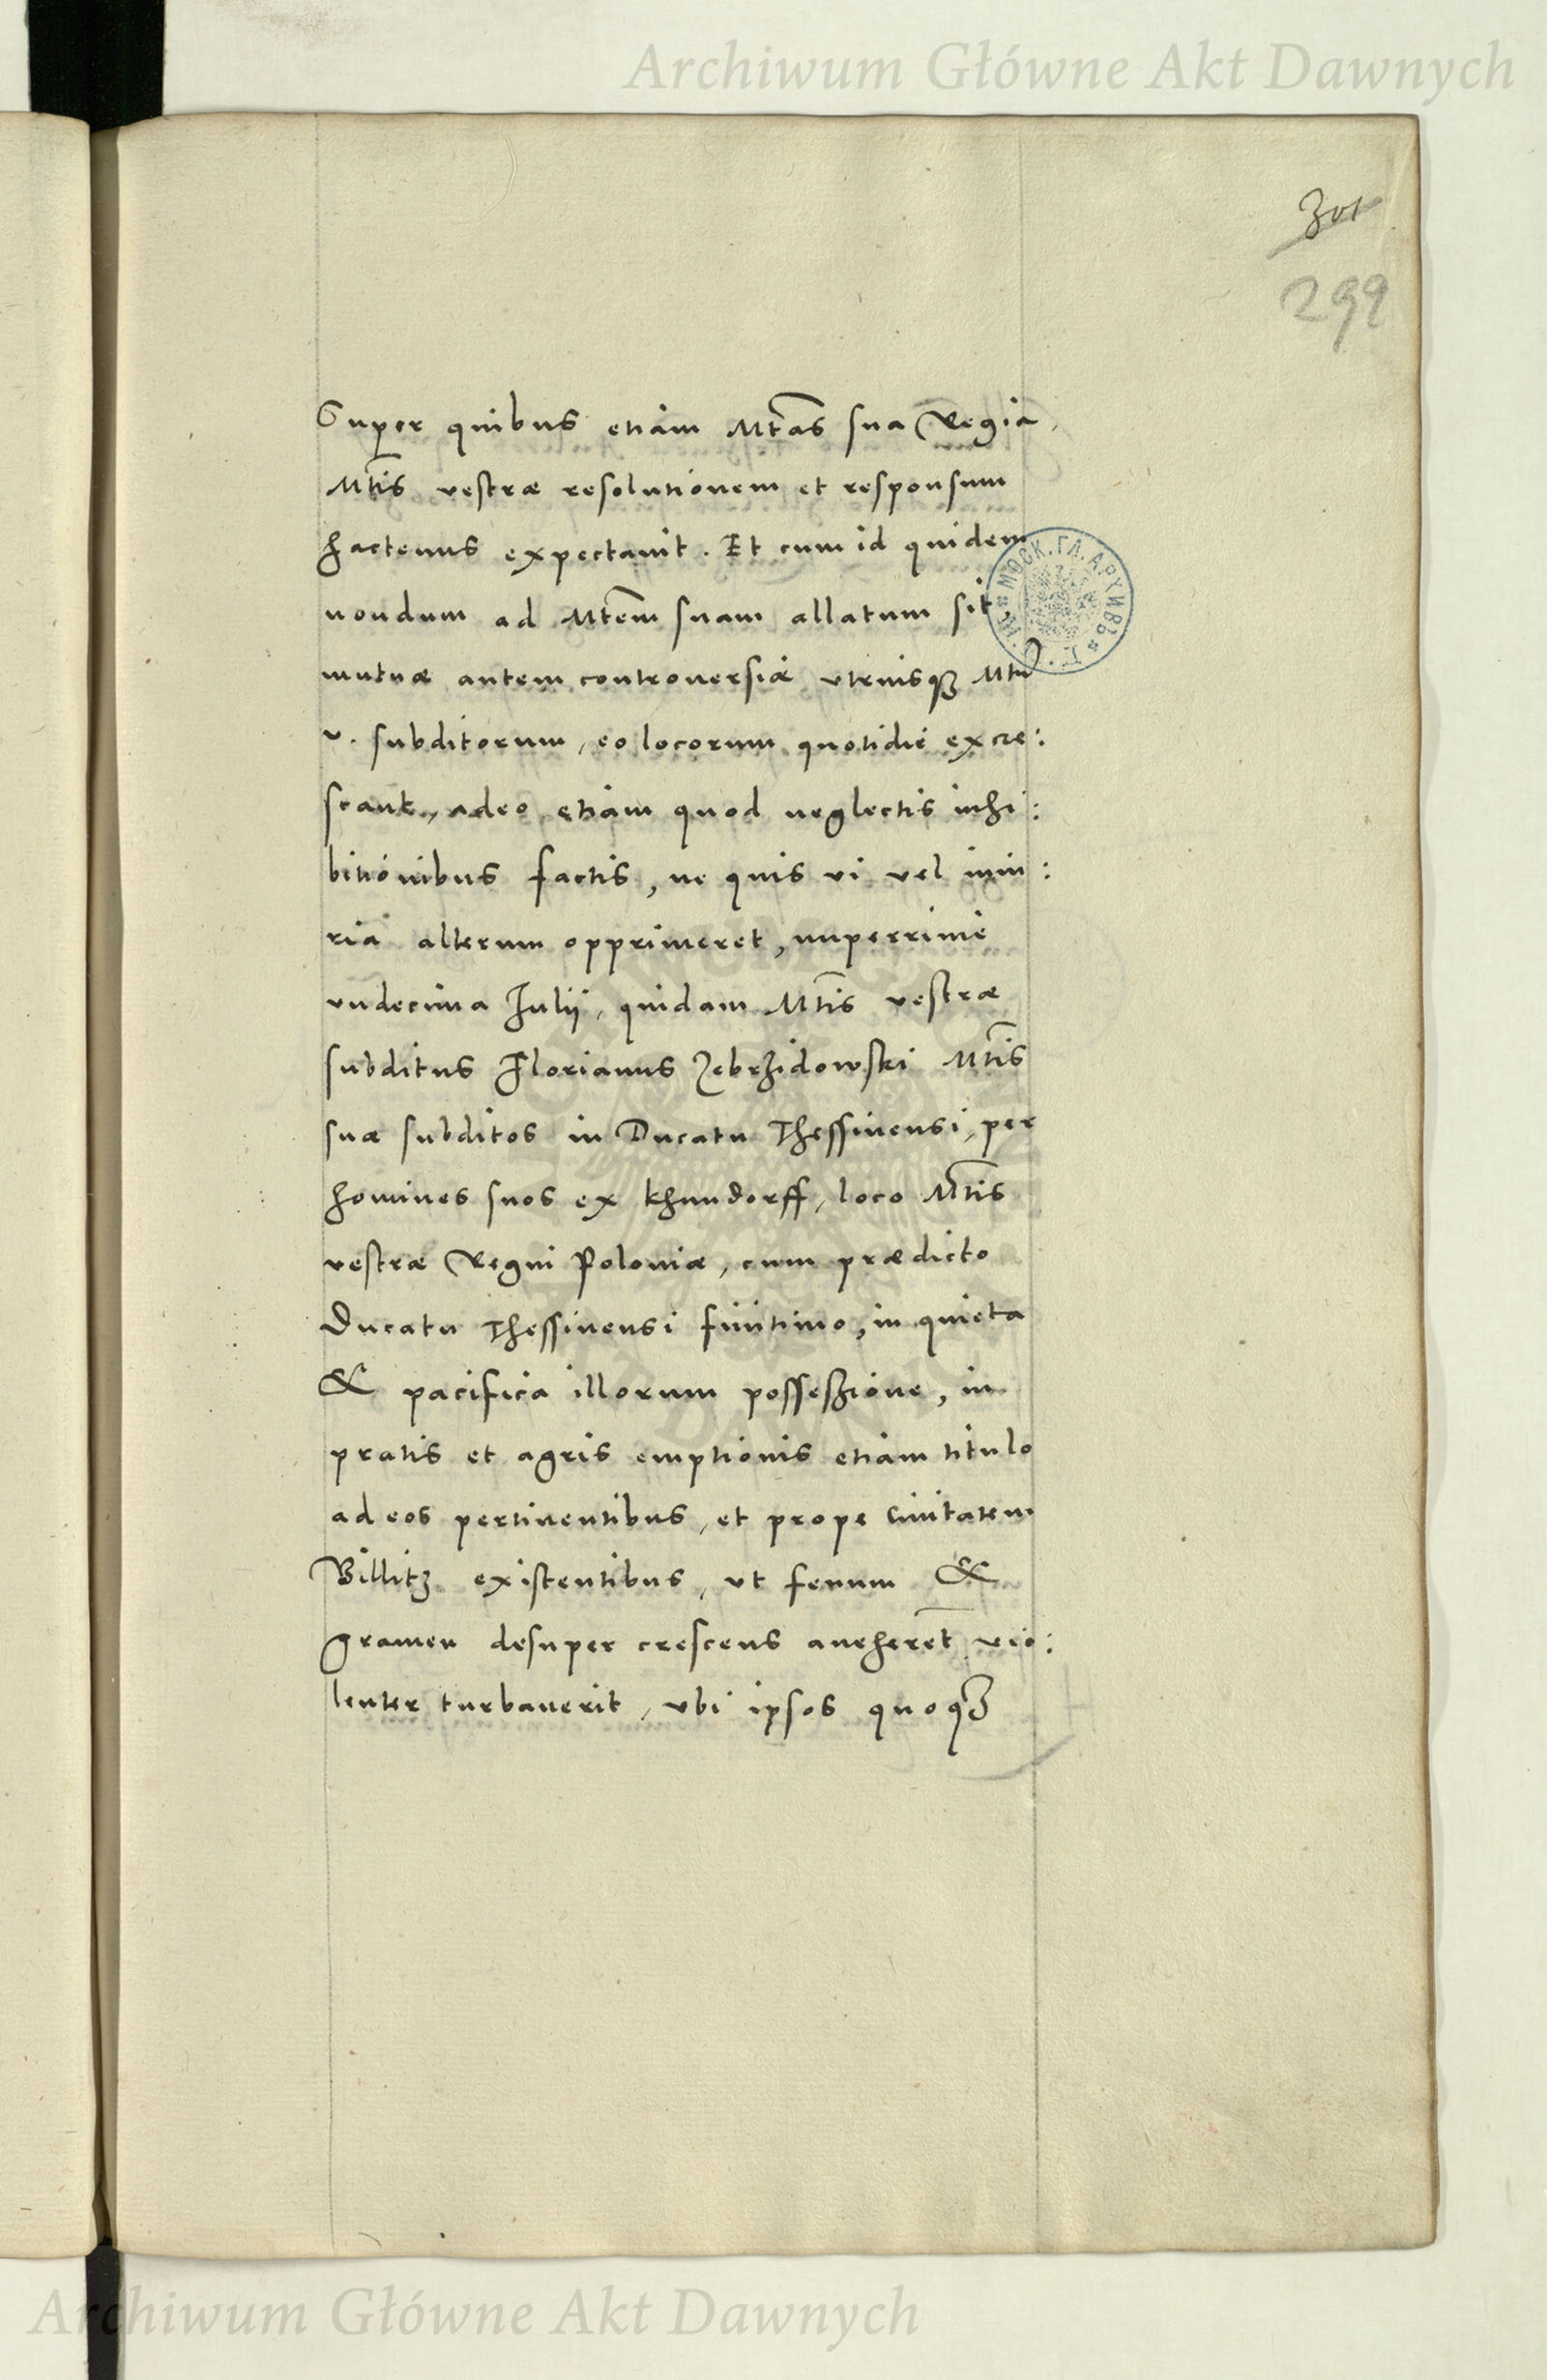 Archiwum Główne Akt Dawnych
301
299
Super quibus etiam Mtas sua Regia
Mtis vestræ resolutionem et responsum
hactenus expectauit. Et cum id quidem
nondum ad Mtem suam allatum sit,
mutuæ autem controuersiæ vtriusq3 Mtis
v. subditorum, eo locorum quotidie excre:
scant, adeo etiam quod neglectis inhi:
bitionibus factis, ne quis vi vel iniu:
ria alterum opprimeret, nuperrime
vndecima Iulii, quidam Mtis vestræ
subditus Florianus Zebrzidowski Mtis
suæ subditos in Ducatu Thessinensi, per
homines suos ex Khundorff, loco Mtis
vestræ Regni Poloniæ, cum prædicto
Ducatu Thessinensi finitimo, in quieta
& pacifica illorum possessione, in
pratis et agris emptionis etiam titulo
ad eos pertinentibus, et prope Ciuitatem
Billitz existentibus, vt fenum &
gramen desuper crescens aueherēt vio:
lenter turbauerit, vbi ipsos quoq3
МОСК. ГЛ. АРХИВЪ
Archiwum Główne Akt Dawnych